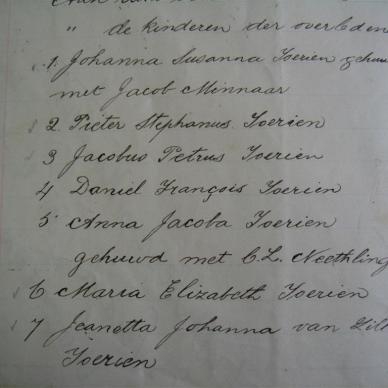 " de kinderen der overleden
1. Johanna Susanna Joerien gehuw
met Jacob Minnaar
2. Pieter Stephanus Joerien
3 Jacobus Petrus Joerien
4 Daniel François Joerien
5 Anna Jacoba Joerien
gehuwd met C.L. Neethling
6 Maria Elizabeth Joerien
7 Jeanetta Johanna van
Joerien